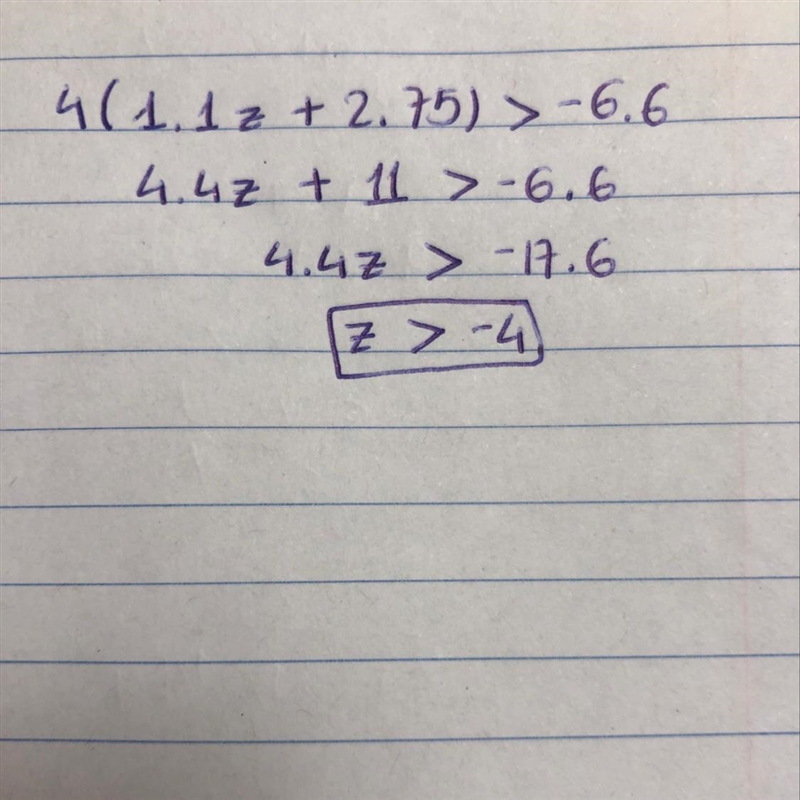 4(1.1z + 2.75) > -6.6
4.4z + 11 > -6.6
4.4z > -17.6
z > -4